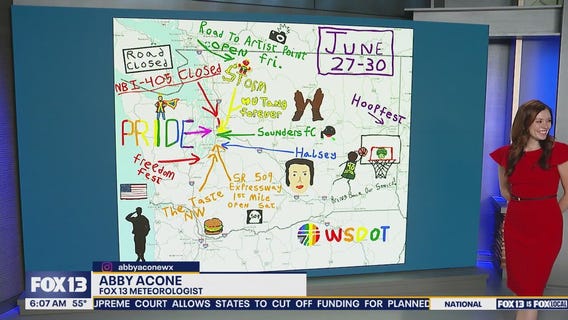 Road To Artist Point
OPEN
fri.
JUNE
27-30
ROAD
CLOSED
NB I-405 Closed
STORM
WU TANG
forever
Hoopfest
PRIDE
Sounders FC
Halsey
freedom
fest
The Taste
NW
SR 509
EXPRESSWAY
1st MILE
OPEN Sat.
509
WSDOT
abbyaconewx
ABBY ACONE
FOX 13 METEOROLOGIST
FOX 13
6:07 AM 55°
SUPREME COURT ALLOWS STATES TO CUT OFF FUNDING FOR PLANNED
NATIONAL
FOX 13 IS FOX